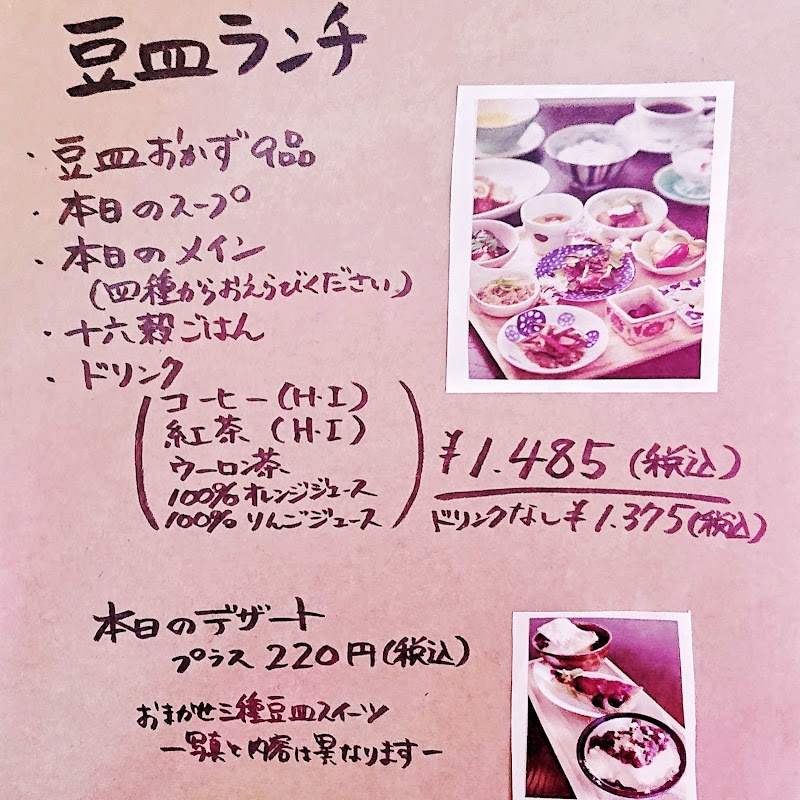 豆皿ランチ
・豆皿おかず9品
・本日のスープ
・本日のメイン
(四種からおえらびください。)
・十六穀ごはん
・ドリンク
コーヒー(H・I)
紅茶(H・I)
ウーロン茶
100%オレンジジュース
100%りんごジュース
¥1.485(税込)
ドリンクなし¥1.375(税込)
本日のデザート
プラス220円(税込)
おまかせ三種豆皿スイーツ
ー写真と内容は異なりますー